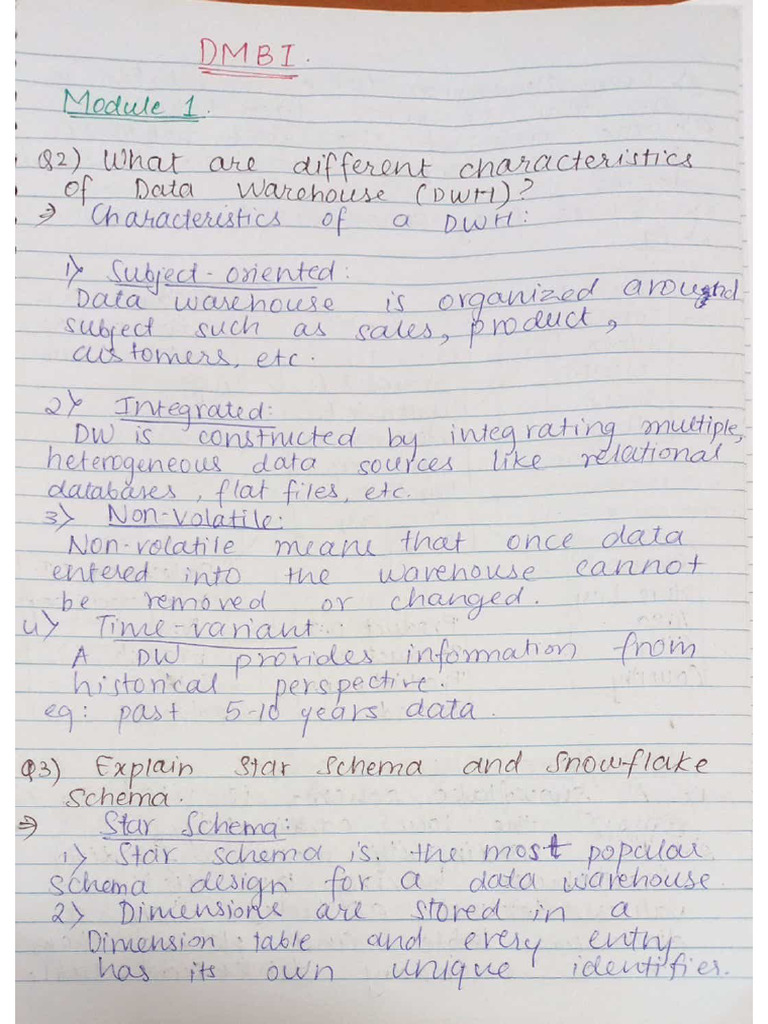 DMBI.
Module 1.
Q2) What are different characteristics
of Data Warehouse (DWH)?
⇒ Characteristics of a DWH:
1) Subject-oriented:
Data warehouse is organized around
subject such as sales, product,
customers, etc.
2) Integrated:
DW is constructed by integrating multiple,
heterogeneous data sources like relational
databases, flat files, etc.
3) Non-volatile:
Non-volatile means that once data
entered into the warehouse cannot
be removed or changed.
4) Time-variant
A DW provides information from
historical perspective.
eg: past 5-10 years data.
Q3) Explain Star Schema and Snowflake
Schema.
⇒ Star Schema:
1) Star schema is the most popular
schema design for a data warehouse
2) Dimensions are stored in a
Dimension table and every entry
has its own unique identifier.